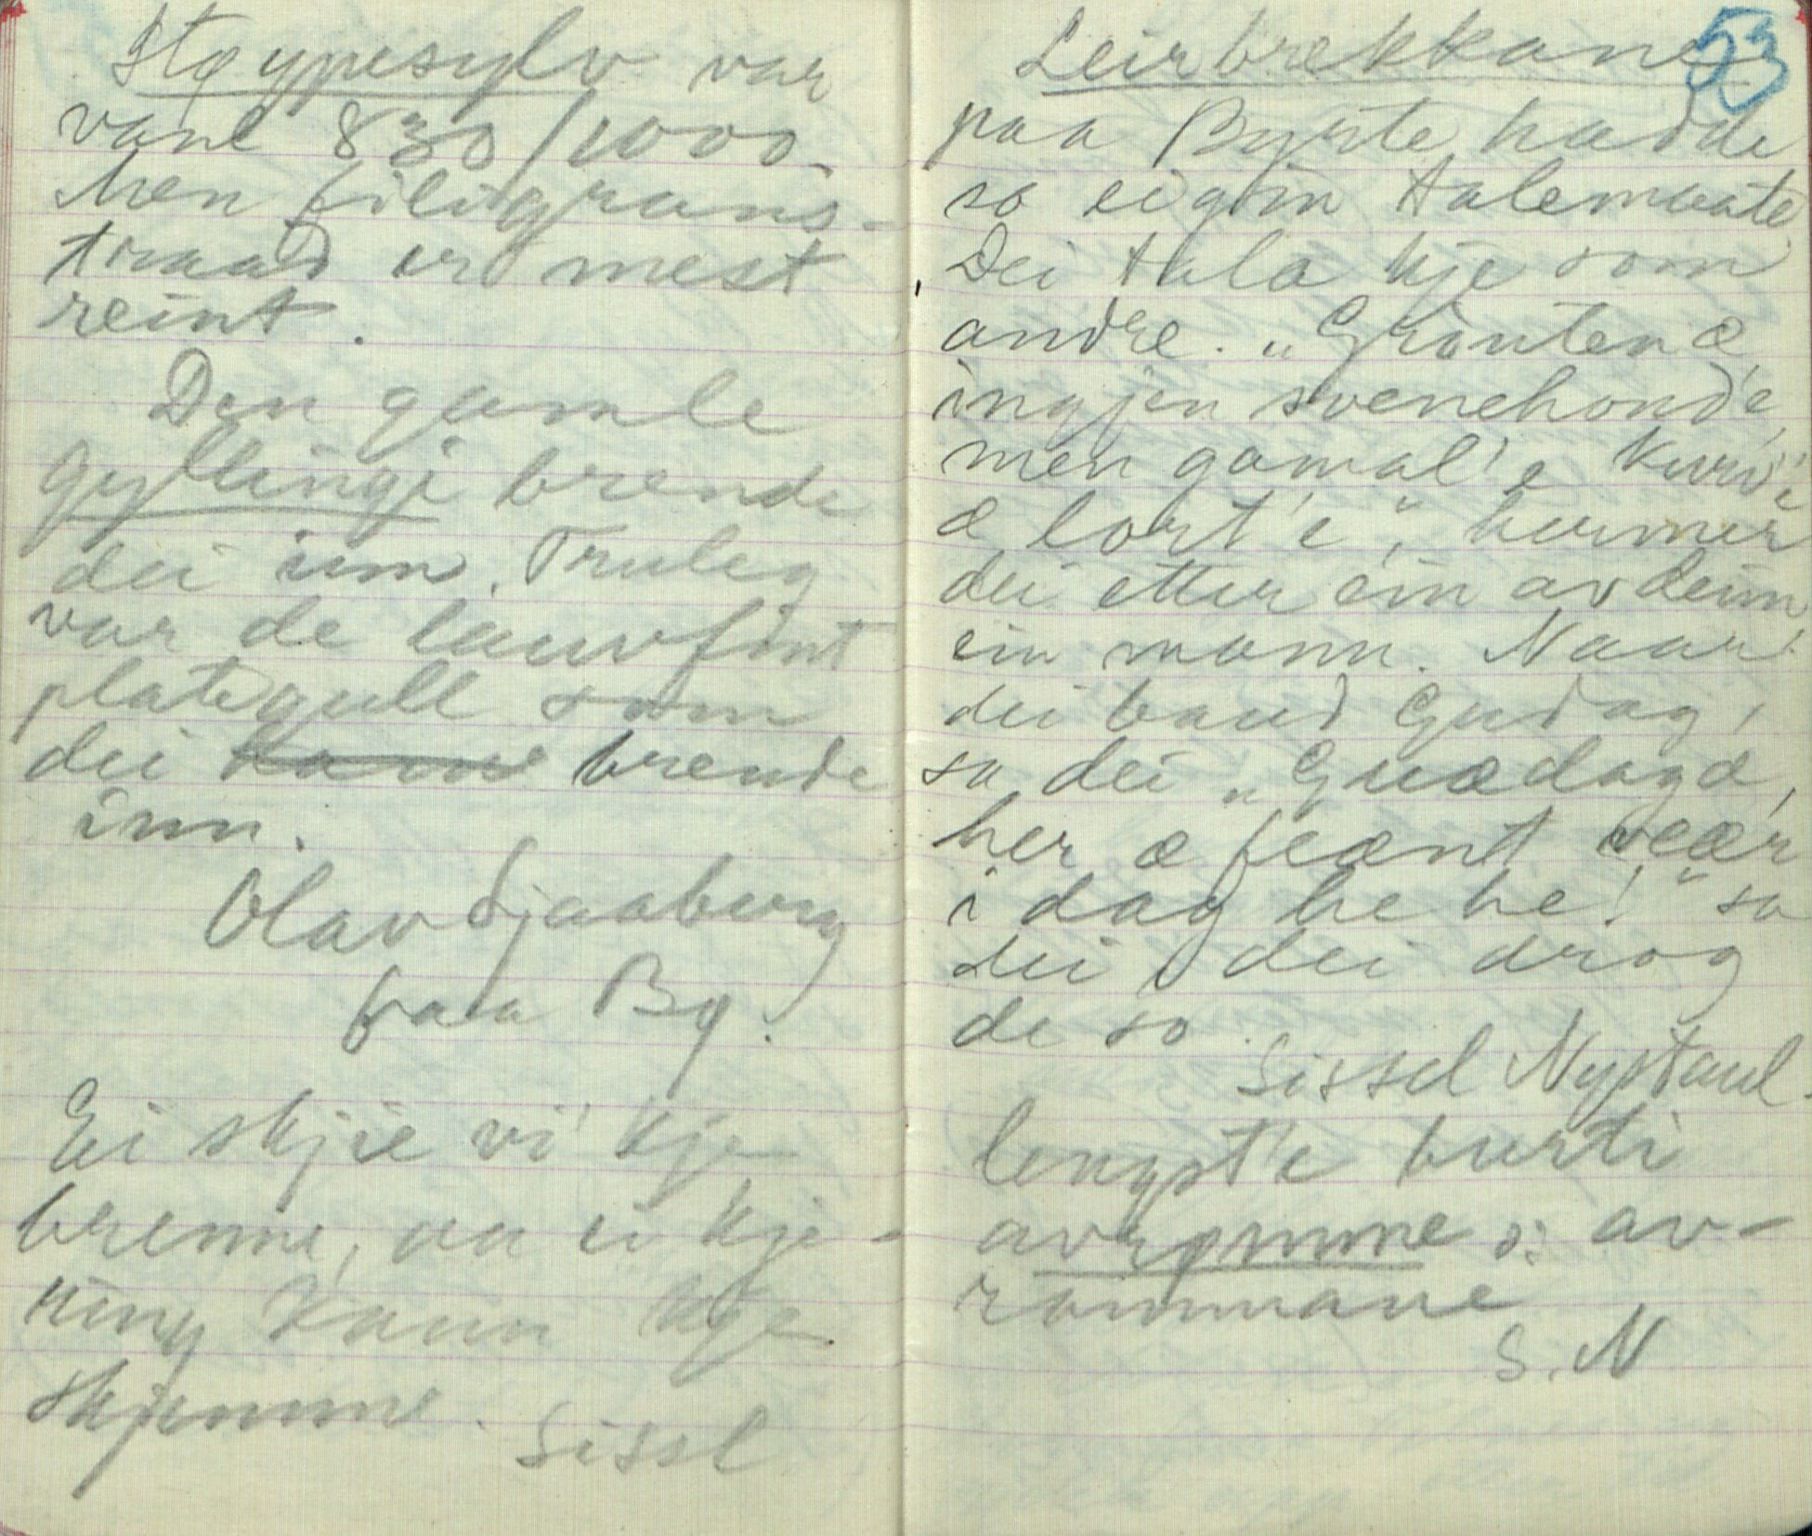 Støypesylv var
vanl 830/1000.
Men filigrans-
traad er mest
reint.
Den gamle
gyllingi brende
dei inn. Truleg
var de lauvfint
plategull som
dei brende
inn.
Olav Sjaaberg
paa Bø.
Ei skjie vi' kje
brenne, aa ei kje-
ring kann kje
skjemme.
Sissl
53
Leirbrekkane
paa Byrte hadde
so eigin talemaate
Dei tala kje som
andre. „Grauten æ
ingjen svenehond'e,
men gamal'e kurv'e
æ lort'e", hermer
dei etter ein av deim
ein mann. Naar
dei baud Gudag,
sa dei „Guædagæ,
her æ feænt veær
i dag he he!" sa
dei dei drog
de so.
Sissel Nystaul.
lengst'e burti
avrømme ɔ: av-
rommane
S. N